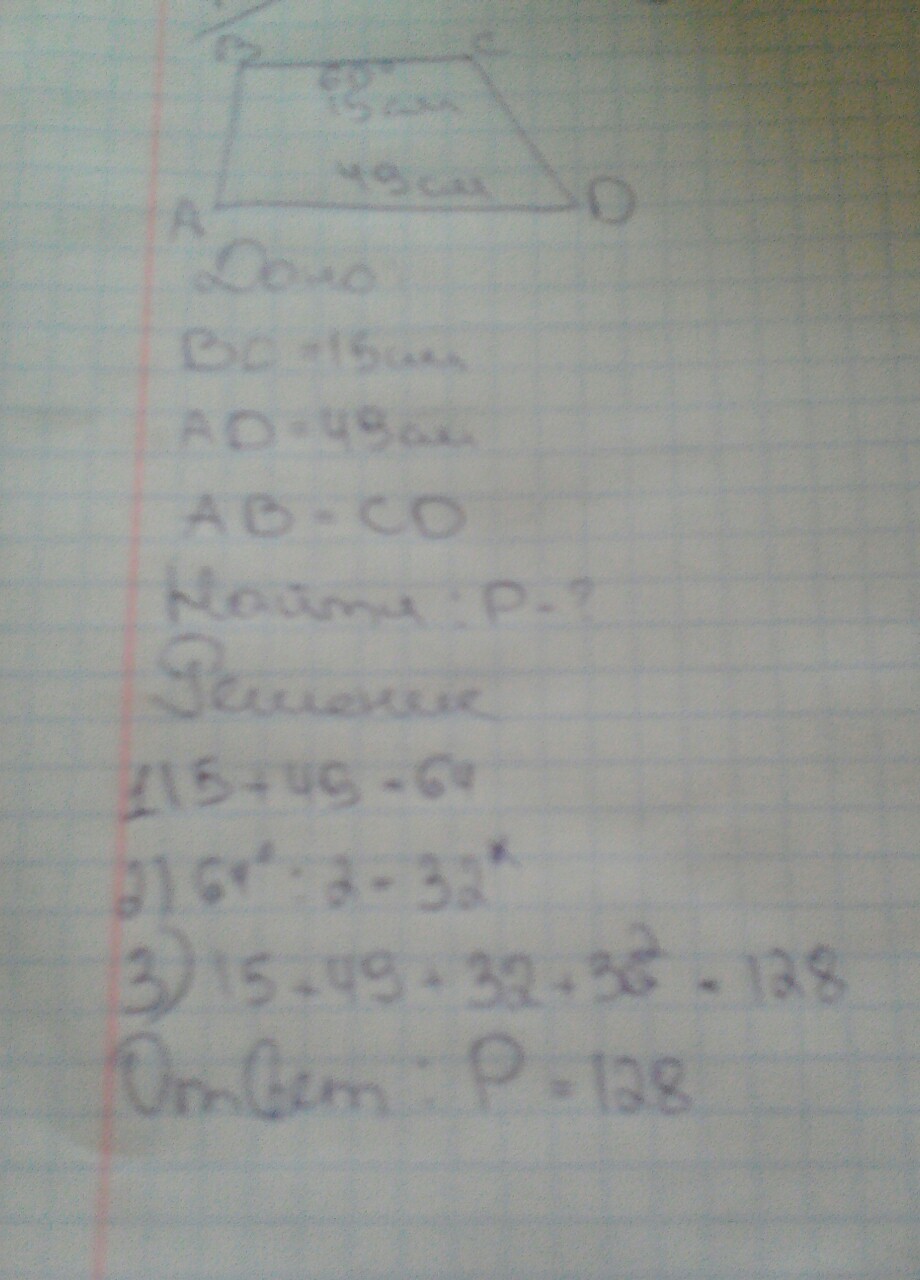 B C
60°
15 см
49 см
A D
Дано
BC = 15 см
AD = 49 см
AB = CD
Найти : P - ?
Решение
1) 15 + 49 = 64
2) 64 : 2 = 32
3) 15 + 49 + 32 + 32 = 128
Ответ : P = 128